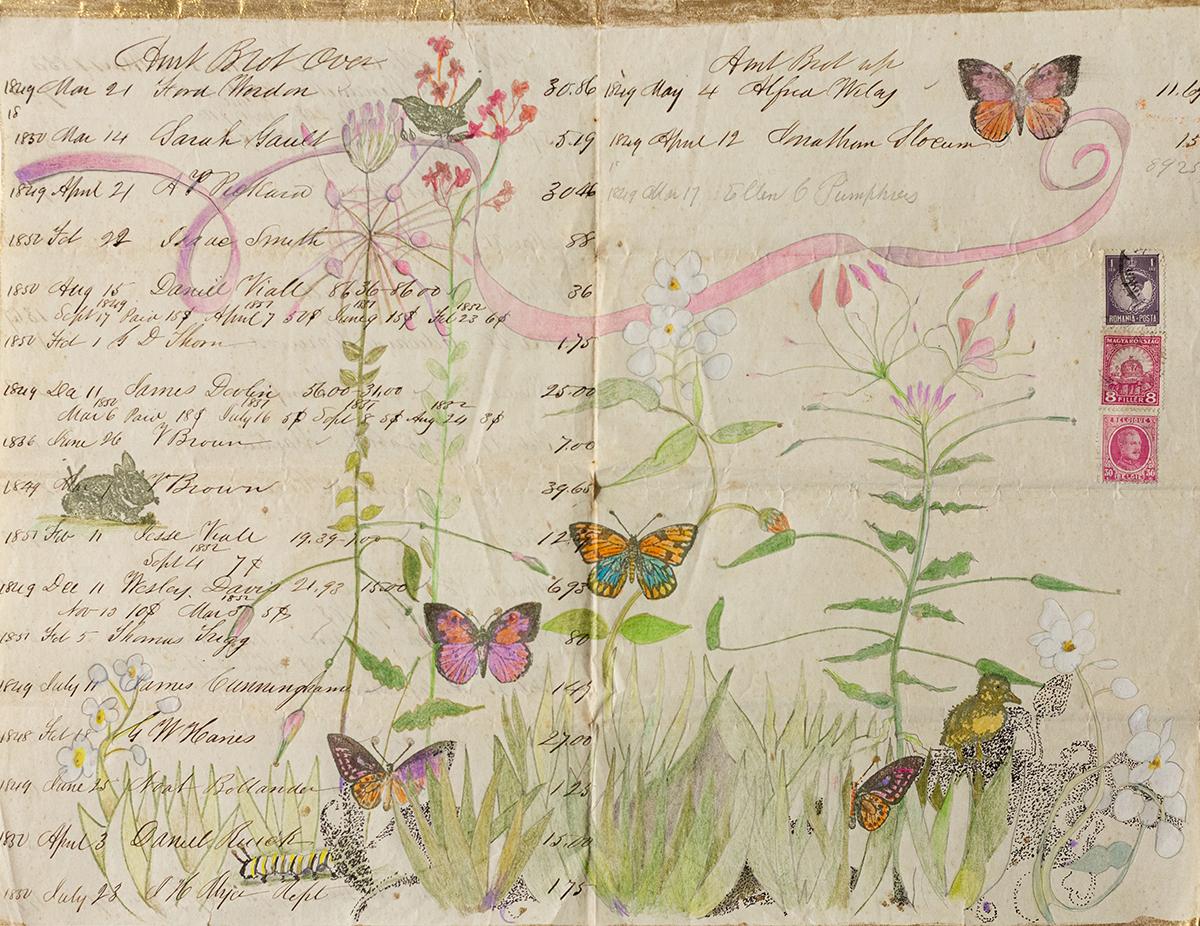 Amt Brot Over
1849 Mar 21 Ford Werdon 30.86
18
1850 Mar 14 Sarah Gault 5.19
1849 April 21 A P Pickard 30.46
1852 Feb 22 Isaac Smith 88
1850 Aug 15 Daniel Viall 86 36-86 00 36
1849 1851 1851 1852
Sept 17 Paid 15$ April 7 50$ June 9 15$ Feb 23 6$
1850 Feb 1 G D Thorn 1.75
1849 Da 11 James Devlin 56.00-31.00 25.00
1850 1851 1851 1852
Mar 6 Paid 18$ July 16 5$ Sept 8 5$ Aug 24 3$
1836 June 26 V Brown 7.00
1849 V Brown 39.65
1851 Feb 11 Jesse Viall 19.39-7.00 12
1852
Sept 4 7$
1849 Dec 11 Wesley Davis 21.93 15.00 6.93
1852
Nov 13 10$ Mar 5$
1851 Feb 5 Thomas Trigg 80
1849 July 11 James Cunningham 1.47
1848 Feb 18 G W Hanes 27.00
1849 June 25 Noat Bollander 1.25
1850 April 3 Daniel Ruick 15.00
1850 July 23 Rept 1.75
Amt Brot up
1849 May 4 Alfred Wilas 11.6
1849 April 12 Jonathan Slocum 1
89 25
1849 Mar 17 Ellen C Pumphres
1 1
ROMANIA-POSTA
MAGYARORSZÁG
8 FILLÉR 8
BELGIQUE
30 30
BELGIË